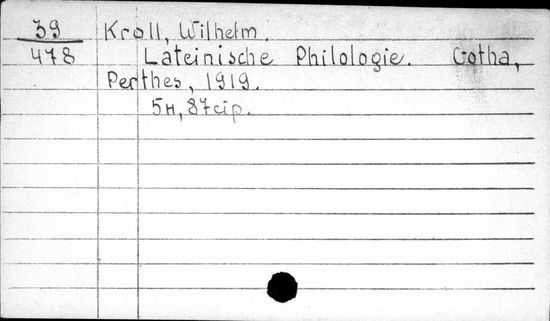 39
478
Kroll, Wilhelm.
Lateinische Philologie. Gotha,
Perthes, 1919.
5н, 87 cip.